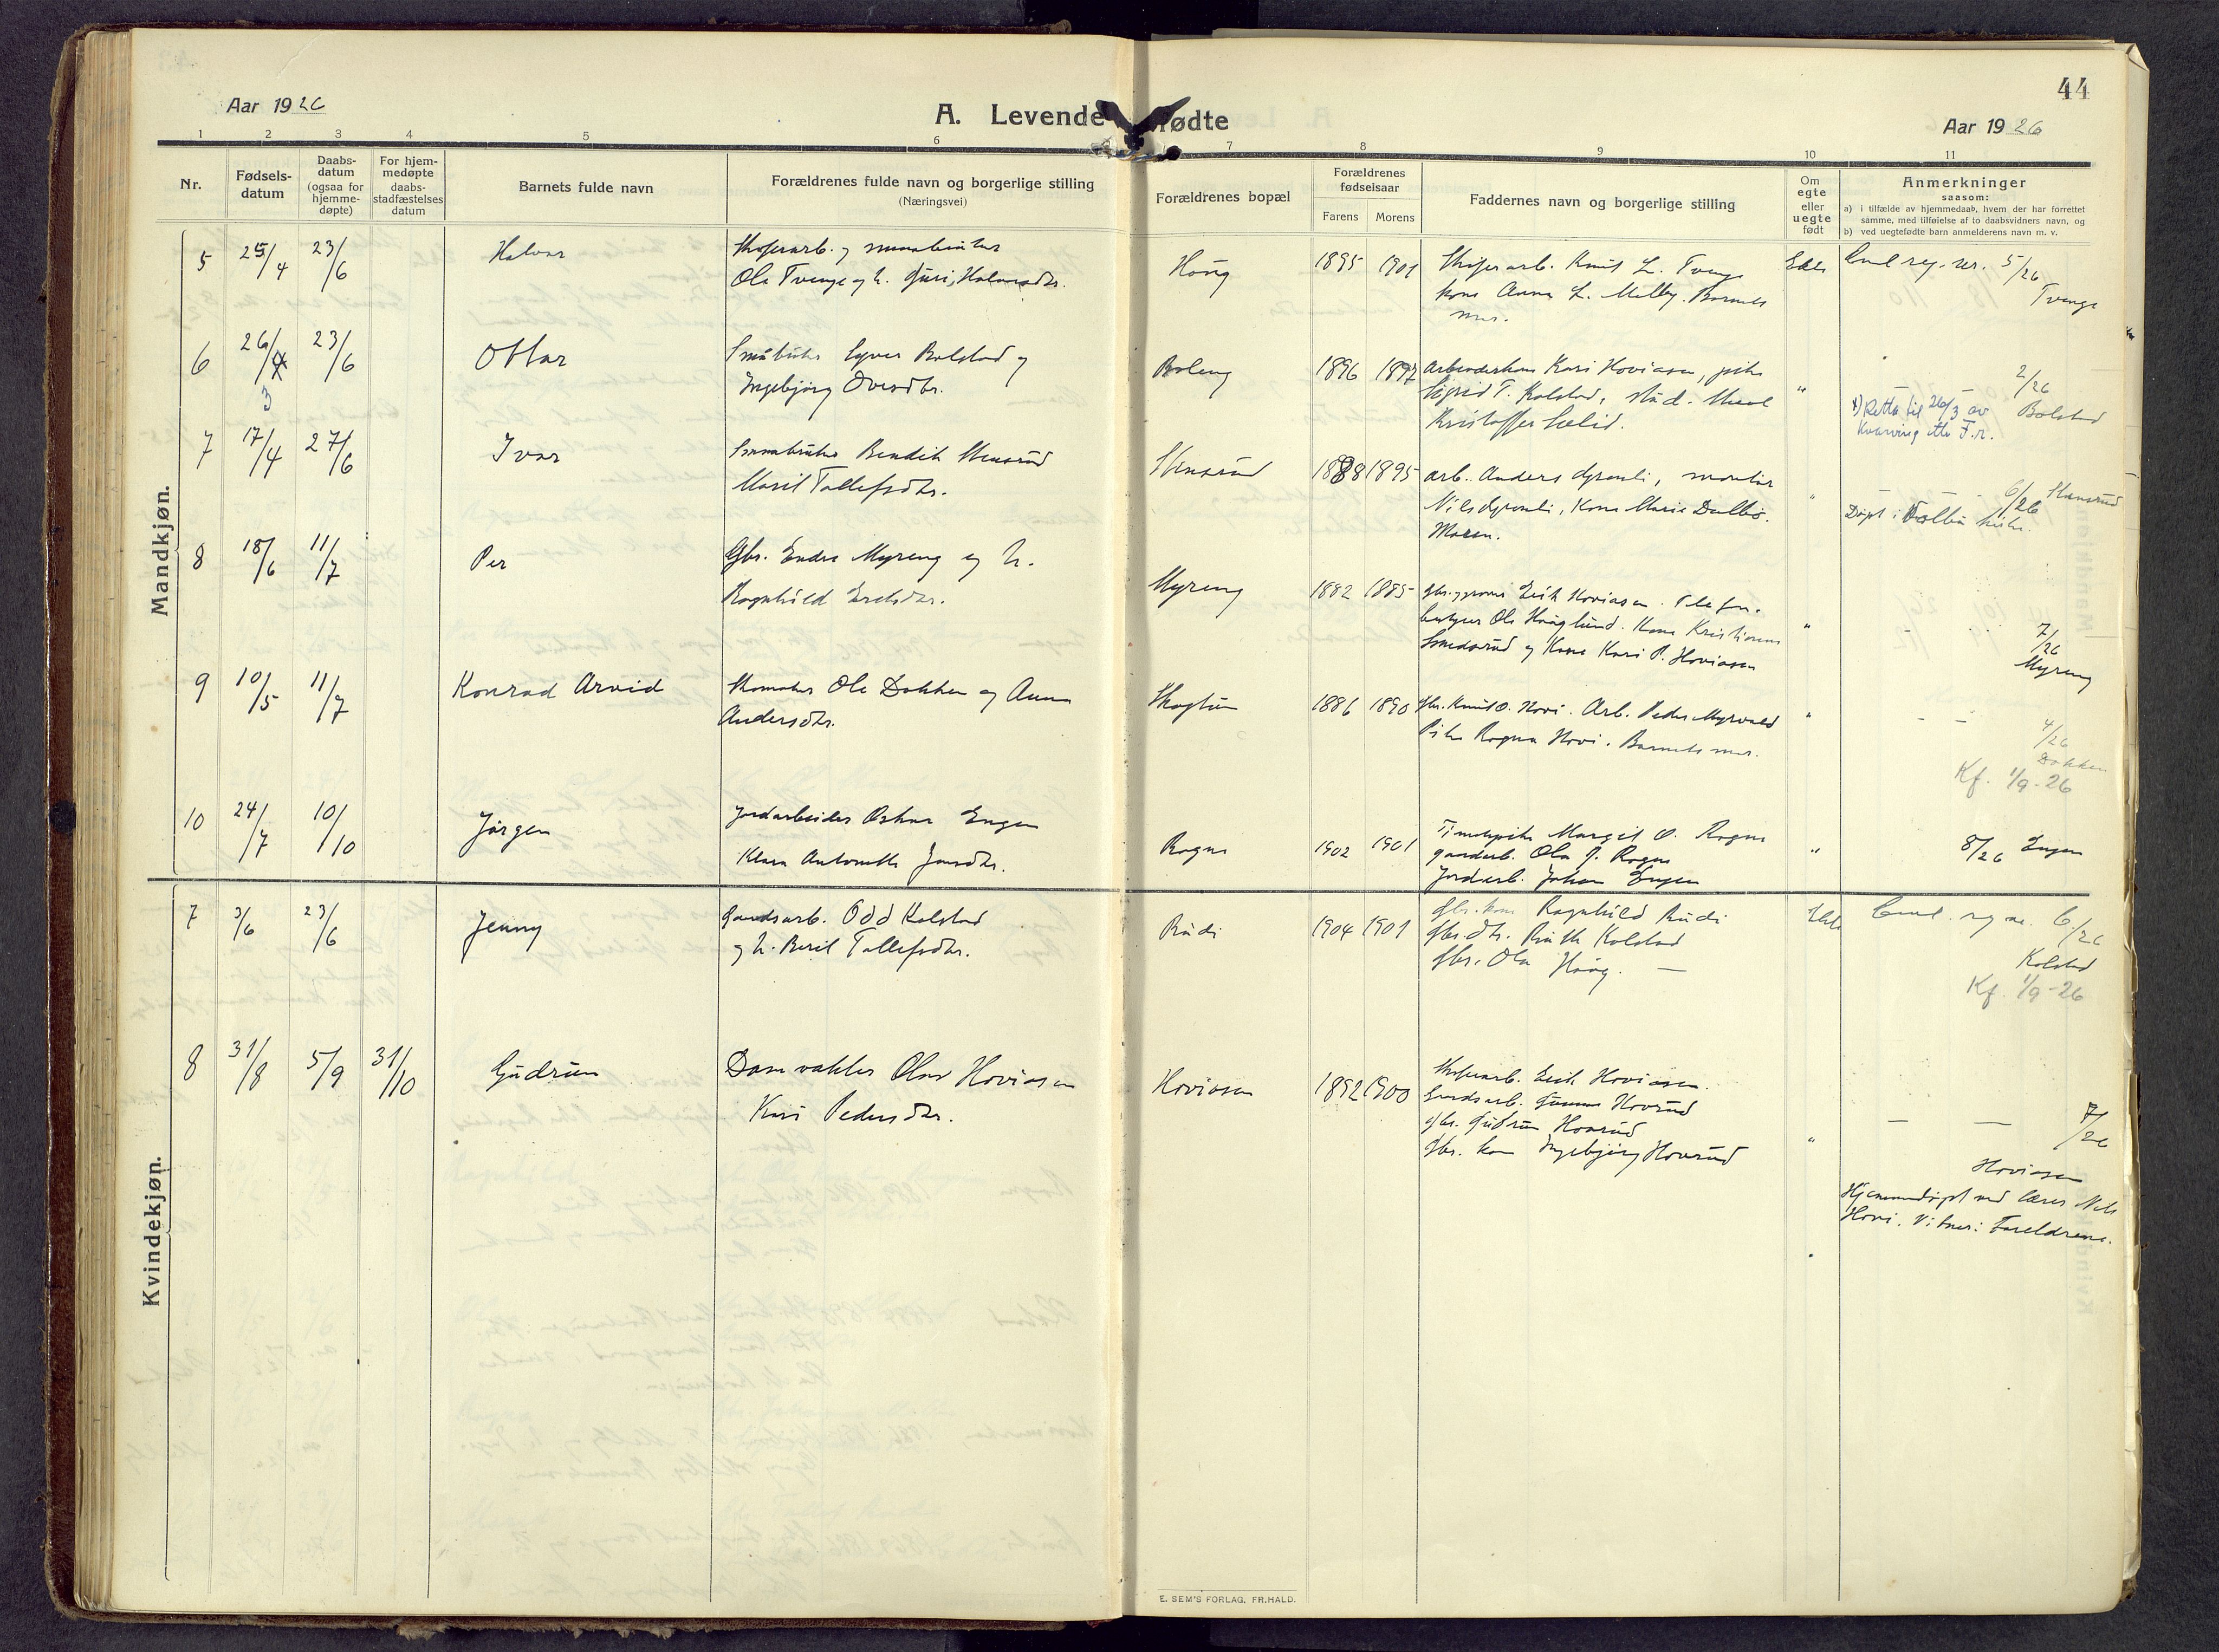 44
Aar 1926
A. Levende fødte
Aar 1926
1 2 3 4 5 6 7 8 9 10 11
Nr.
Fødsels-
datum
Daabs-
datum
(ogsaa for
hjemme-
døpte)
For hjem-
medøpte
daabs-
stadfæstelses
datum
Barnets fulde navn
Forældrenes fulde navn og borgerlige stilling
(Næringsvei)
Forældrenes bopæl
Forældrenes
fødselsaar
Farens Morens
Faddernes navn og borgerlige stilling
Om
egte
eller
uegte
født
Anmerkninger
saasom:
a) i tilfælde av hjemmedaab, hvem der har forrettet
samme, med tilføielse af to daabsvidners navn, og
b) ved uegtefødte barn anmelderens navn m. v.
Mandkjøn.
5 25/4 23/6 Halvor
Skoferarb. og smaabruker
Ole Tvenge og h. Guri Halvorsdtr.
Haug 1895 1901
Knut L. Tvenge
kone Anna L. Melby. Barnets
mor.
Ekte
5/26
Tvenge
6 26/4 3 23/6 Ottar
Småbruker Bolstad og
Ingebjørg
Boleng 1896 1897
Arbeiderkone Kari Hoviosen, pike
Sigrid T. Kolstad, stud.
Kristoffer
"
2/26
Bolstad
x) Retta til 26/3 av
F.r.
7 17/4 27/6 Ivar
Smaabruker Bendik Stensrud
Marit Tollefsdtr.
Stensrud 1888 1895
arb. Anders
Nils Kone Marie
Moren.
"
6/26 Stensrud
Døpt i
8 18/6 11/7 Per
Gbr. Endre Myreng og h.
Ragnhild
Myreng 1882 1885
Erik Hoviosen.
Ole Hauglund. Kone
Smedsrud og Kone Kari P. Hoviosen
"
7/26
Myreng
9 10/5 11/7 Konrad Arvid
Skomaker Ole Dokken og Anna
Andersdtr.
Skogtun 1886 1890
Gbr. Knut O. Hovi. Arb. Peder Myrvold
Pike Ragna Hovi. Barnets mor.
"
4/26
Dokken
Kf. 1/9-26
10 24/7 10/10 Jørgen
Jordarbeider Oskar Engen
Klara Antonette
Rogne 1902 1901
Margit O. Rogne
gaardarb. Ola Rogne
Jordarb. Johan Engen
"
8/26 Engen
Kvindekjøn.
7 3/6 23/6 Jenny
Gaardsarb. Odd Kolstad
og h. Berit Tollefsdtr.
Rudi 1904 1901
Gbr. kone Ragnhild Rudi
Gbr. dtr. Ruth Kolstad
Gbr. Ola Haug. —
Ekte
6/26
Kolstad
Kf. 1/9-26
8 31/8 5/9 31/10 Gudrun
Damvakter Olav Hoviosen
Kari Pedersdtr.
Hoviosen 1892 1900
Skoferarb. Erik Hoviosen.
Gaardsarb. Gunnar Hovrud
Gbr. Gudrun Hovrud
Gbr. kone Ingebjørg Hovrud
"
— — 7/26
Hoviosen
Hjemmedøpt ved lærer Nils
Hovi. Vitner: Foreldrene.
E. SEM'S FORLAG, FR.HALD.